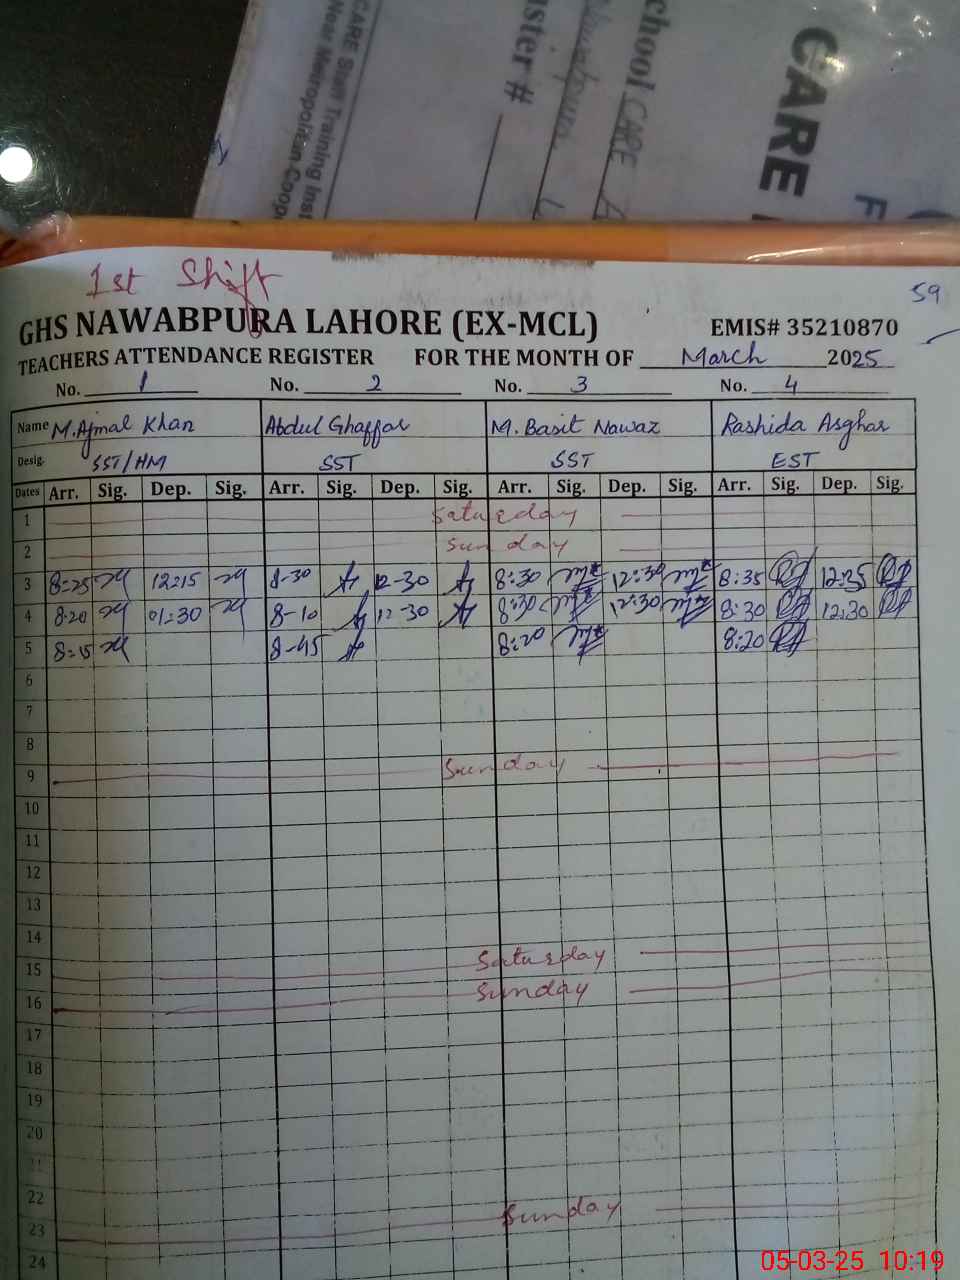 CARE Staff Training Inst
Near Metropolis in Coop
ster #
chool CARE
CARE
F
1st Shift
59
GHS NAWABPURA LAHORE (EX-MCL) EMIS# 35210870
TEACHERS ATTENDANCE REGISTER FOR THE MONTH OF March 2025
No. 1 No. 2 No. 3 No. 4
Name M.Ajmal Khan Abdul Ghaffar M. Basit Nawaz Rashida Asghar
Desig. SST/HM SST SST EST
Dates Arr. Sig. Dep. Sig. Arr. Sig. Dep. Sig. Arr. Sig. Dep. Sig. Arr. Sig. Dep. Sig.
1 Saturday
2 Sunday
3 8:25 12:15 8-30 12-30 8:30 12:30 8:35 12:35
4 8:20 01:30 8-10 12-30 8:30 12:30 8:30 12:30
5 8:15 8-45 8:20 8:20
6
7
8
9 Sunday
10
11
12
13
14
15 Saturday
16 Sunday
17
18
19
20
21
22
23 Sunday
24
05-03-25 10:19